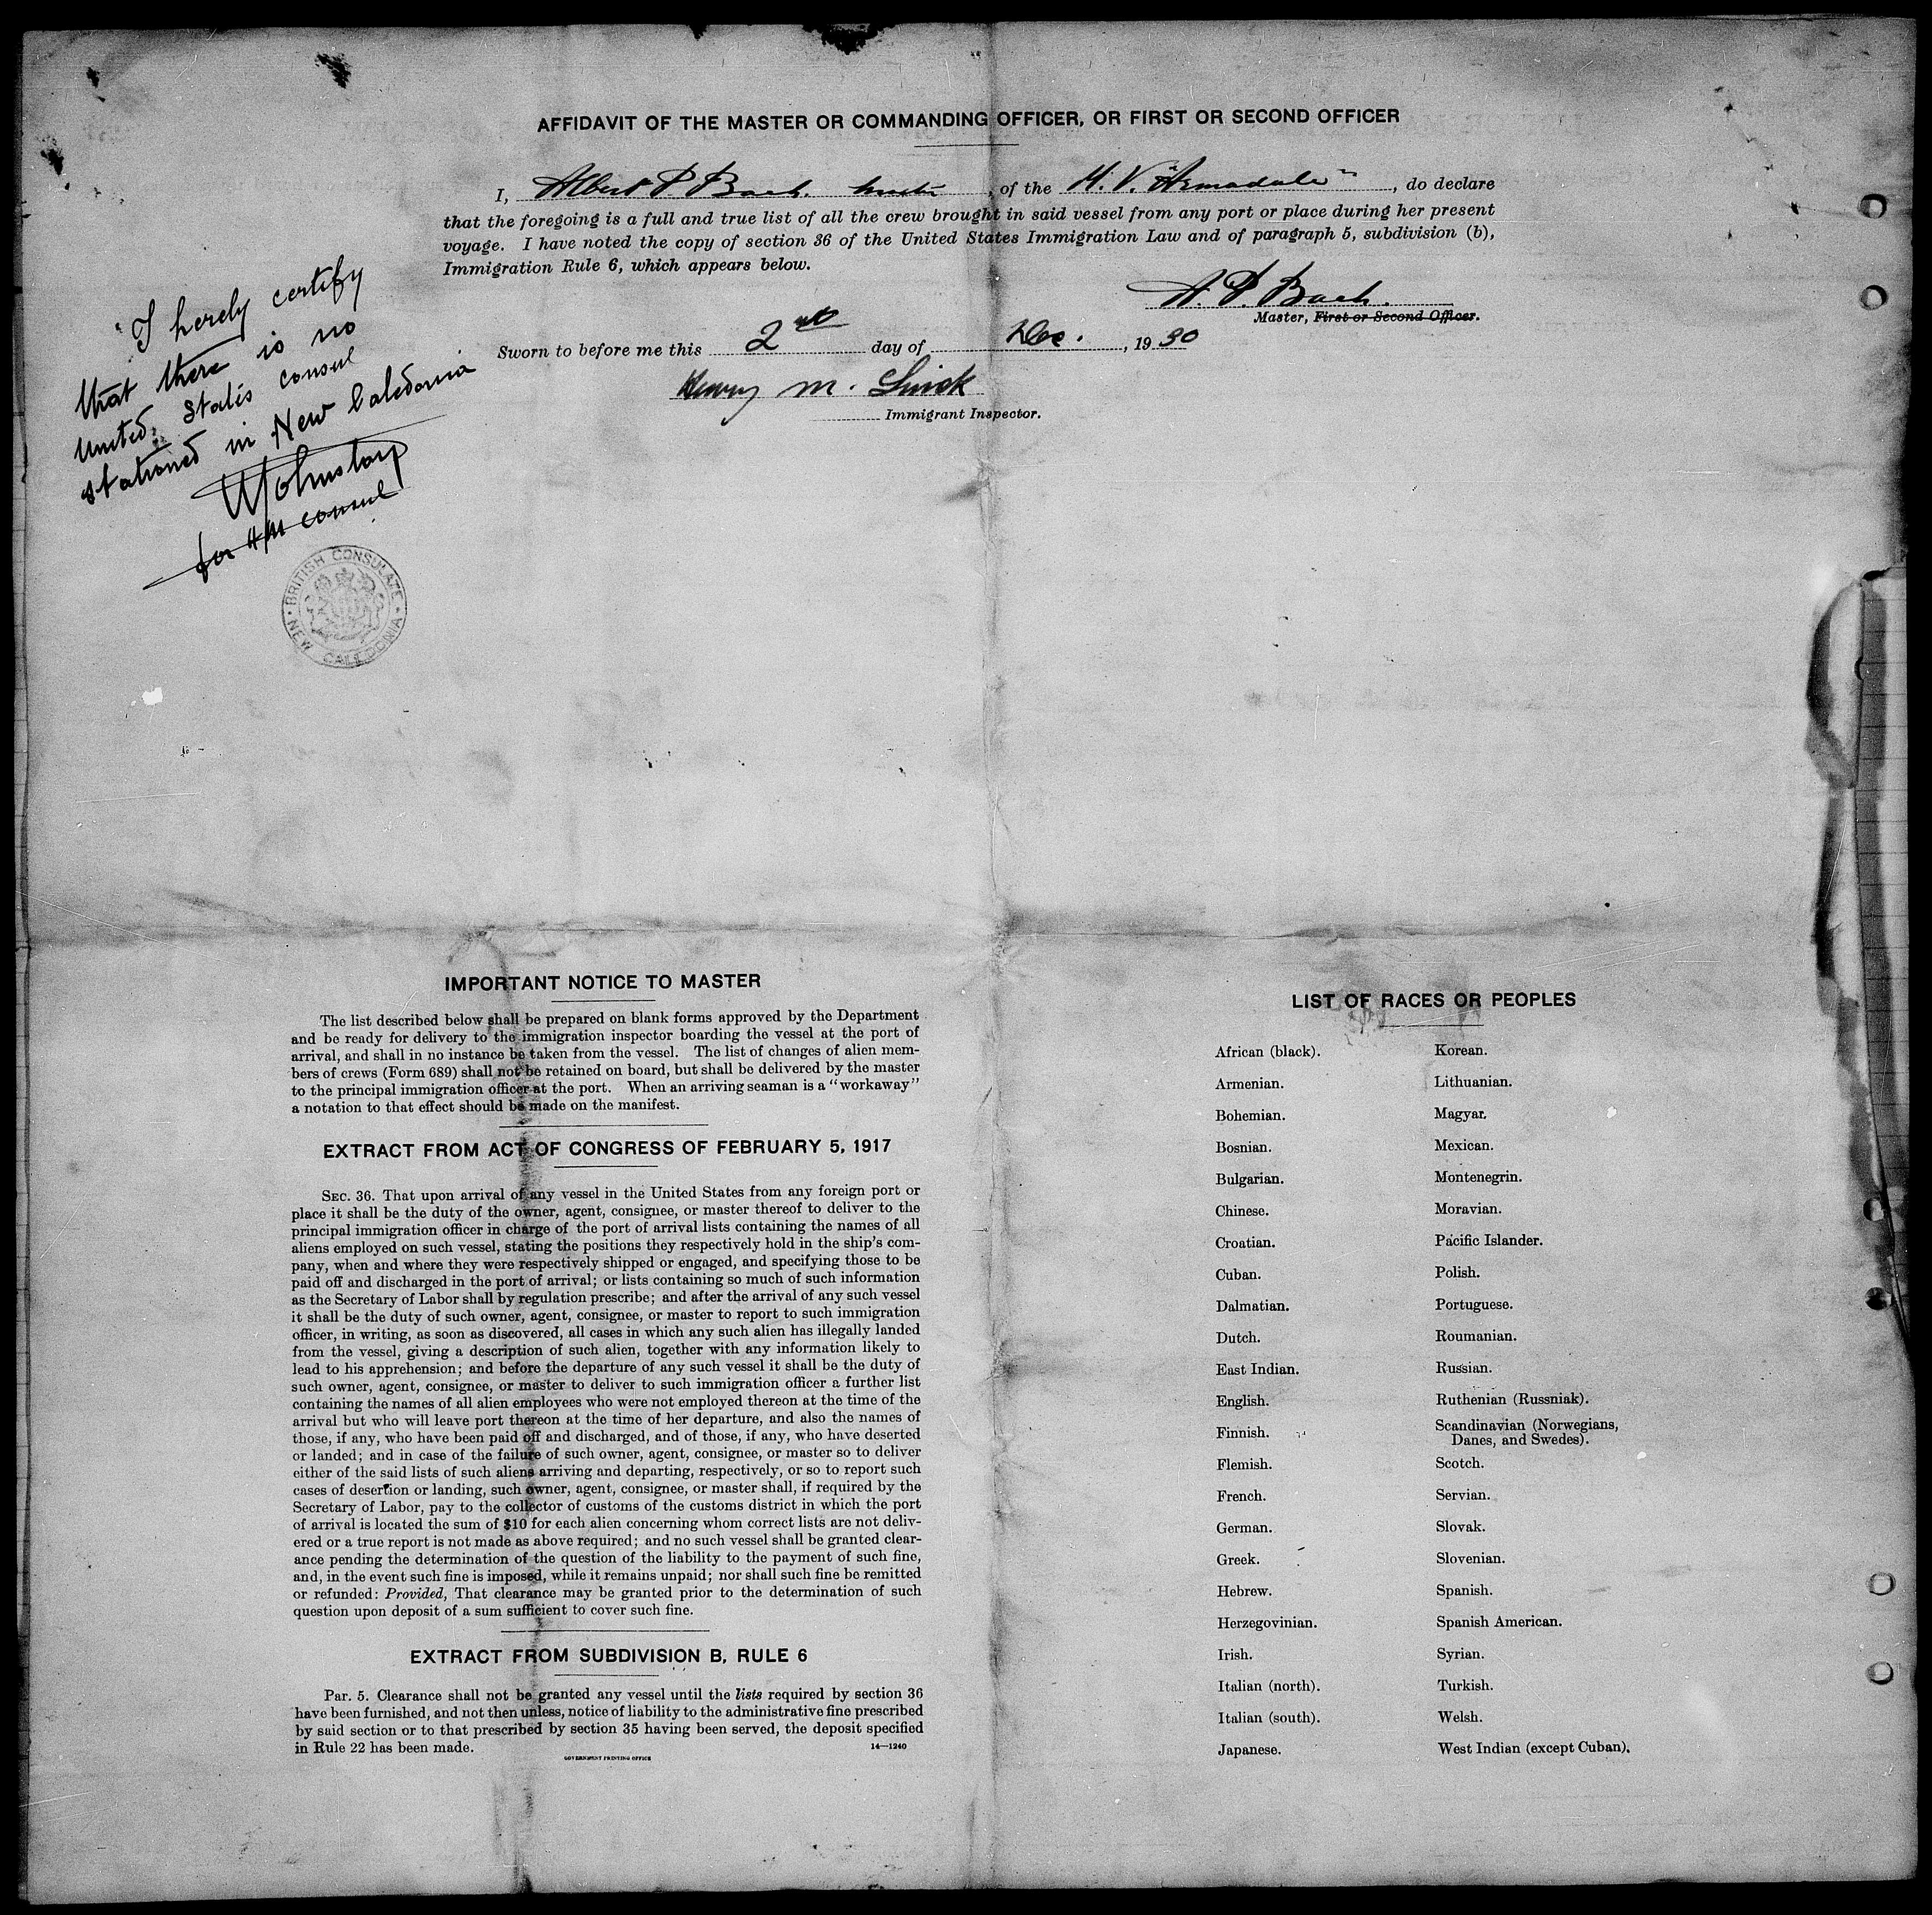 AFFIDAVIT OF THE MASTER OR COMMANDING OFFICER, OR FIRST OR SECOND OFFICER
I, Albert P Bach. master, of the M.V. "Armadale", do declare
that the foregoing is a full and true list of all the crew brought in said vessel from any port or place during her present
voyage. I have noted the copy of section 36 of the United States Immigration Law and of paragraph 5, subdivision (b),
Immigration Rule 6, which appears below.
A. P. Bach.
Master, First or Second Officer.
Sworn to before me this 2nd day of Dec., 1930
Henry M.
Immigrant Inspector.
I herely certify
that there is no
United States consul
stationed in New Caledonia
for HM consul
BRITISH CONSULATE
NEW CALEDONIA
IMPORTANT NOTICE TO MASTER
The list described below shall be prepared on blank forms approved by the Department
and be ready for delivery to the immigration inspector boarding the vessel at the port of
arrival, and shall in no instance be taken from the vessel. The list of changes of alien mem-
bers of crews (Form 689) shall not be retained on board, but shall be delivered by the master
to the principal immigration officer at the port. When an arriving seaman is a "workaway"
a notation to that effect should be made on the manifest.
EXTRACT FROM ACT OF CONGRESS OF FEBRUARY 5, 1917
SEC. 36. That upon arrival of any vessel in the United States from any foreign port or
place it shall be the duty of the owner, agent, consignee, or master thereof to deliver to the
principal immigration officer in charge of the port of arrival lists containing the names of all
aliens employed on such vessel, stating the positions they respectively hold in the ship's com-
pany, when and where they were respectively shipped or engaged, and specifying those to be
paid off and discharged in the port of arrival; or lists containing so much of such information
as the Secretary of Labor shall by regulation prescribe; and after the arrival of any such vessel
it shall be the duty of such owner, agent, consignee, or master to report to such immigration
officer, in writing, as soon as discovered, all cases in which any such alien has illegally landed
from the vessel, giving a description of such alien, together with any information likely to
lead to his apprehension; and before the departure of any such vessel it shall be the duty of
such owner, agent, consignee, or master to deliver to such immigration officer a further list
containing the names of all alien employees who were not employed thereon at the time of the
arrival but who will leave port thereon at the time of her departure, and also the names of
those, if any, who have been paid off and discharged, and of those, if any, who have deserted
or landed; and in case of the failure of such owner, agent, consignee, or master so to deliver
either of the said lists of such aliens arriving and departing, respectively, or so to report such
cases of desertion or landing, such owner, agent, consignee, or master shall, if required by the
Secretary of Labor, pay to the collector of customs of the customs district in which the port
of arrival is located the sum of $10 for each alien concerning whom correct lists are not deliv-
ered or a true report is not made as above required; and no such vessel shall be granted clear-
ance pending the determination of the question of the liability to the payment of such fine,
and, in the event such fine is imposed, while it remains unpaid; nor shall such fine be remitted
or refunded: Provided, That clearance may be granted prior to the determination of such
question upon deposit of a sum sufficient to cover such fine.
EXTRACT FROM SUBDIVISION B, RULE 6
Par. 5. Clearance shall not be granted any vessel until the lists required by section 36
have been furnished, and not then unless, notice of liability to the administrative fine prescribed
by said section or to that prescribed by section 35 having been served, the deposit specified
in Rule 22 has been made.
14—1240
GOVERNMENT PRINTING OFFICE
LIST OF RACES OR PEOPLES
African (black).
Armenian.
Bohemian.
Bosnian.
Bulgarian.
Chinese.
Croatian.
Cuban.
Dalmatian.
Dutch.
East Indian.
English.
Finnish.
Flemish.
French.
German.
Greek.
Hebrew.
Herzegovinian.
Irish.
Italian (north).
Italian (south).
Japanese.
Korean.
Lithuanian.
Magyar.
Mexican.
Montenegrin.
Moravian.
Pacific Islander.
Polish.
Portuguese.
Roumanian.
Russian.
Ruthenian (Russniak).
Scandinavian (Norwegians,
Danes, and Swedes).
Scotch.
Servian.
Slovak.
Slovenian.
Spanish.
Spanish American.
Syrian.
Turkish.
Welsh.
West Indian (except Cuban).